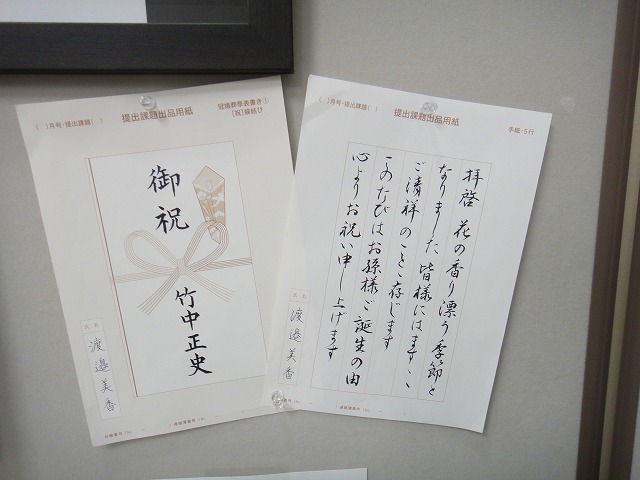 ( )月号・提出課題( )
提出課題出品用紙
冠婚葬祭表書き①
[祝]蝶結び
御祝
竹中正史
氏名
渡邉美香
( )月号・提出課題( )
提出課題出品用紙
手紙・5行
拝啓 花の香り漂う季節と
なりました 皆様にはますく
ご清祥のことゝ存じます
このたびはお孫様ご誕生の由
心よりお祝い申し上げます
氏名
渡邉美香